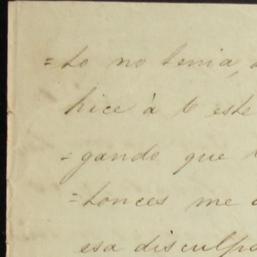 =to no tenia,
hice à b este
=gando que
=tonces me
esa disculpa